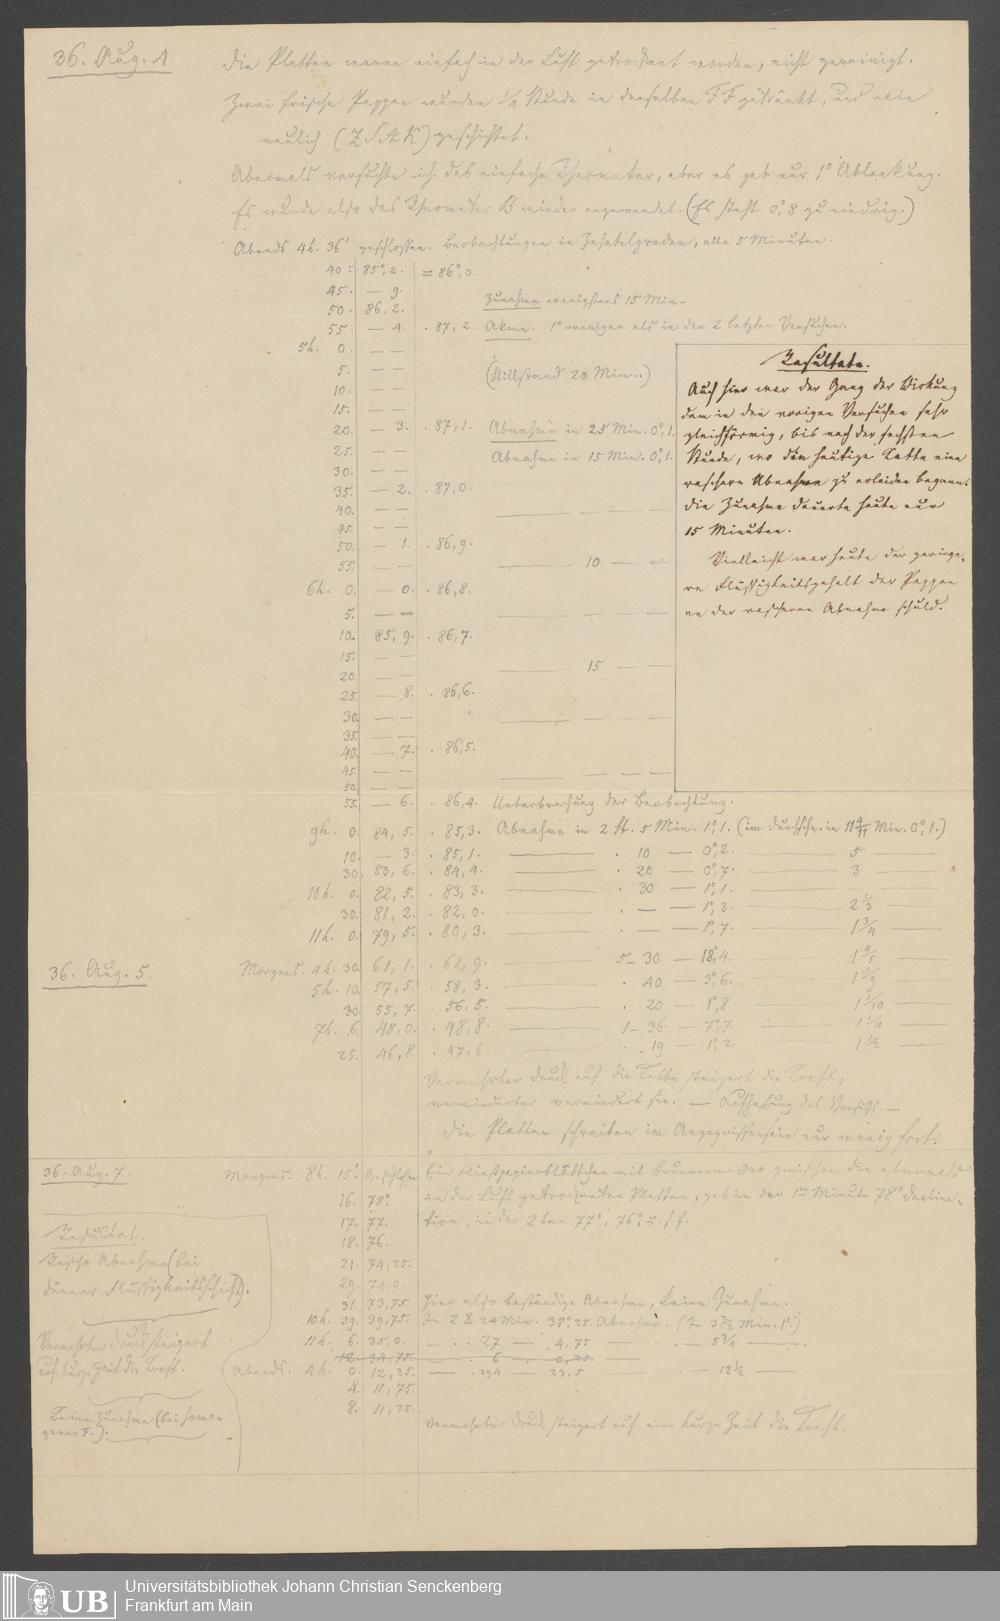 36. Aug. 4.
Die Platten waren einfach in der Luft getrocknet worden, nicht gereinigt.
Zwei frische Pappen wurden 1/4 Stunde in derselben FF getränkt, und wie
neulich (ZSAK) geschichtet.
Abermals versuchte ich das einfache Thermometer, aber es gab nur 1° Ablenkung.
Es wurde also das B wieder angewendet. (Es steht 0°,8 zu niedrig.)
Abends 4h. 36' geschlossen. Beobachtungen in Zehntelgraden, alle 5 Minuten.
40. 85°,2. = 86°,0.
45. — 9.
Zunahme wenigstens 15 Min..
50. 86,2.
55. — 4. . 87,2. Akme. 1° weniger als in den 2 letzten Versuchen.
5h. 0. — —
5. — — (Stillstand 20 Min..)
10. — —
15. — —
20. — 3. . 87,1. Abnahme in 25 Min. 0°,1.
25. — — Abnahme in 15 Min. 0°,1.
30. — —
35. — 2. . 87,0.
40. — —
45. — —
50. — 1. . 86,9.
55. — — — 10 — —
6h. 0. — 0. . 86,8.
5. — —
10. 85,9. . 86,7.
15. — — — 15 — —
20. — —
25. — 8. . 86,6.
30. — —
35. — —
40. — 7. . 86,5.
45. — —
50. — —
55. — 6. . 86,4. Unterbrechung der Beobachtung.
Resultate.
Auch hier war der Gang der Wirkung
dem in den vorigen Versuchen sehr
gleichförmig, bis nach der sechsten
Stunde, wo die heutige Kette eine
raschere Abnahme zu erleiden begann.
Die Zunahme dauerte heute nur
15 Minuten.
Vielleicht war heute der geringe-
re Flüssigkeitsgehalt der Pappen
an der rascheren Abnahme schuld.
9h. 0. 84,5. . 85,3. Abnahme in 2 St. 5 Min. 1°,1. (im Durchschn. in 11 4/11 Min. 0°,1.)
10. — 3. . 85,1. — . 10 — 0°,2. — 5 —
30. 83,6. . 84,4. — . 20 — 0°,7. — 3 —
10h. 0. 82,5. . 83,3. — . 30 — 1°,1. —
30. 81,2. . 82,0. — . — — 1°,3. — 2 1/3 —
11h. 0. 79,5. . 80,3. — . — — 1°,7. — 1 3/4 —
36. Aug. 5. Morgens. 4h. 30. 61,1. . 61,9. — 5 — 30 — 18°,4. — 1 4/5 —
5h. 10. 57,5. . 58,3. — . 40 — 3°,6. — 1 1/9 —
30. 55,7. . 56,5. — . 20 — 1°,8 — 1 1/10 —
7h. 6. 48,0. . 48,8. — 1 — 36. — 7°,7. — 1 1/4 —
25. 46,8. . 47,6. — . 19 — 1°,2. — 1 1/2 —
Vermehrter Druck auf die Kette steigert die Kraft,
verminderter vermindert sie. — Aufhebung des Versuchs. —
Die Platten schreiten im Angegriffensein nur wenig fort.
36. Aug. 7. Morgens. 8h. 15' geschlossen Ein Fließpapierblättchen mit Brunnenwasser zwischen die abermals
16. 78° in der Luft getrockneten Platten, gab in der 1ten Minute 78° Declina-
17. 77. tion, in der 2ten 77°, 76°, u.s.f.
18. 76.
21. 74,25.
29. 74,0.
31. 73,75 Hier also beständige Abnahme, keine Zunahme.
10h. 39. 39,75. In 2 St 24 Min. 38°,25 Abnahme. (In 3 2/3 Min. 1°.)
11h. 6. 35,0. — . 27 — 4,75 — . — 5 3/4 —
12. 34,75. — . 6 . 0,25 —
Abends. 4h. 0. 12,25. — . 294 — 23,5 — — 12 1/2 —
4. 11,75.
8. 11,25.
Vermehrter Druck steigert auf eine kurze Zeit die Kraft.
Resultat.
Rasche Abnahme (bei
dünner Flüssigkeitsschicht).
Vermehrter Druck steigert
auf kurze Zeit die Kraft.
Keine Zunahme (bei homo-
gener F.).
UB
Universitätsbibliothek Johann Christian Senckenberg
Frankfurt am Main